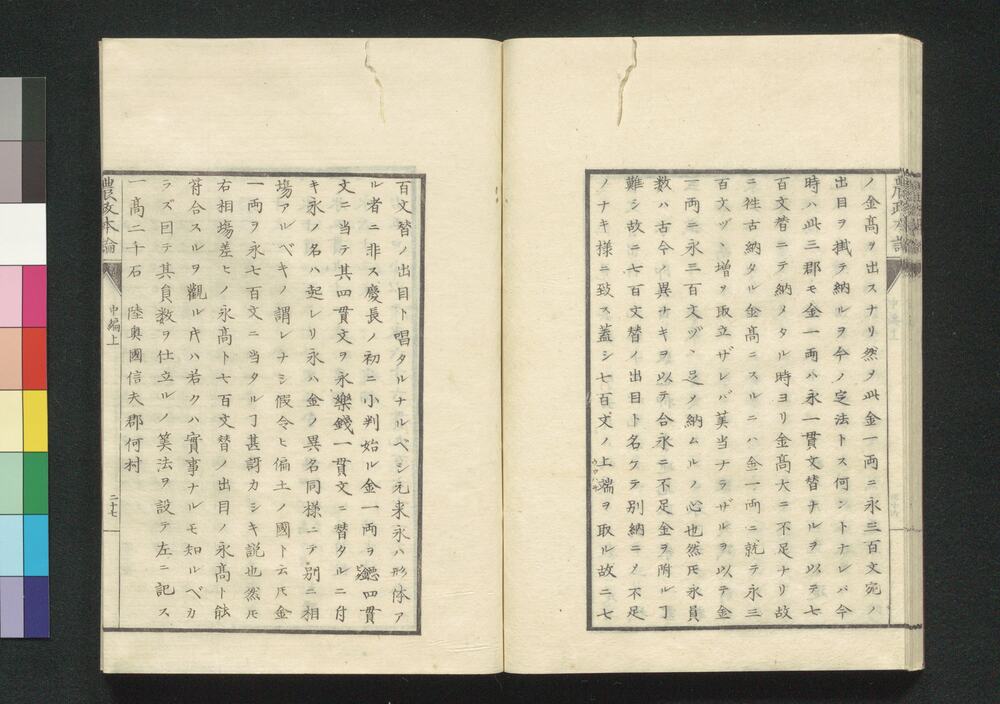 ノ金高ヲ出スナリ然ヲ此金一両ニ永三百文宛ノ
出目ヲ掛テ納ルヲ今ノ定法トス何ントナレバ今
時ハ此三郡モ金一両ハ永一貫文替ナルヲ以テ七
百文替ニテ納メタル時ヨリ金高大ニ不足ナリ故
ニ徃古納タル金高ニスルニハ金一両ニ就テ永三
百文ヅヽ増ヲ取立ザレバ莫当ナラザルヲ以テ金
一両ニ永三百文ヅヽ足メ納ムルノ心也然𪜈永員
数ハ古今ノ異ナキヲ以テ合永ニ不足金ヲ附ルヿ
難シ故ニ七百文替ノ出目ト名ケテ別納ニノ不足
ノナキ様ニ致ス蓋シ七百文ノ上端ヲ取ル故ニ七
百文替ノ出目ト唱タルナルベシ元来永ハ形体ア
ル者ニ非ス慶長ノ初ニ小判始ル金一両ヲ鐚四貫
文ニ当テ其四貫文ヲ永樂錢一貫文ニ替タルニ付
キ永ノ名ハ起レリ永ハ金ノ異名同様ニテ別ニ相
塲アルベキノ謂レナシ假令ヒ偏土ノ國ト云𪜈金
一両ヲ永七百文ニ当タルヿ甚訝カシキ説也然𪜈
右相塲差ヒノ永高ト七百文替ノ出目ノ永高ト能
苻合スルヲ觀ル片ハ若クハ實事ナルモ知ルベカ
ラズ因テ其負数ヲ仕立ルノ筭法ヲ設テ左ニ記ス
一高二千石　陸奥國信夫郡何村
農政本論
中編上
二十七